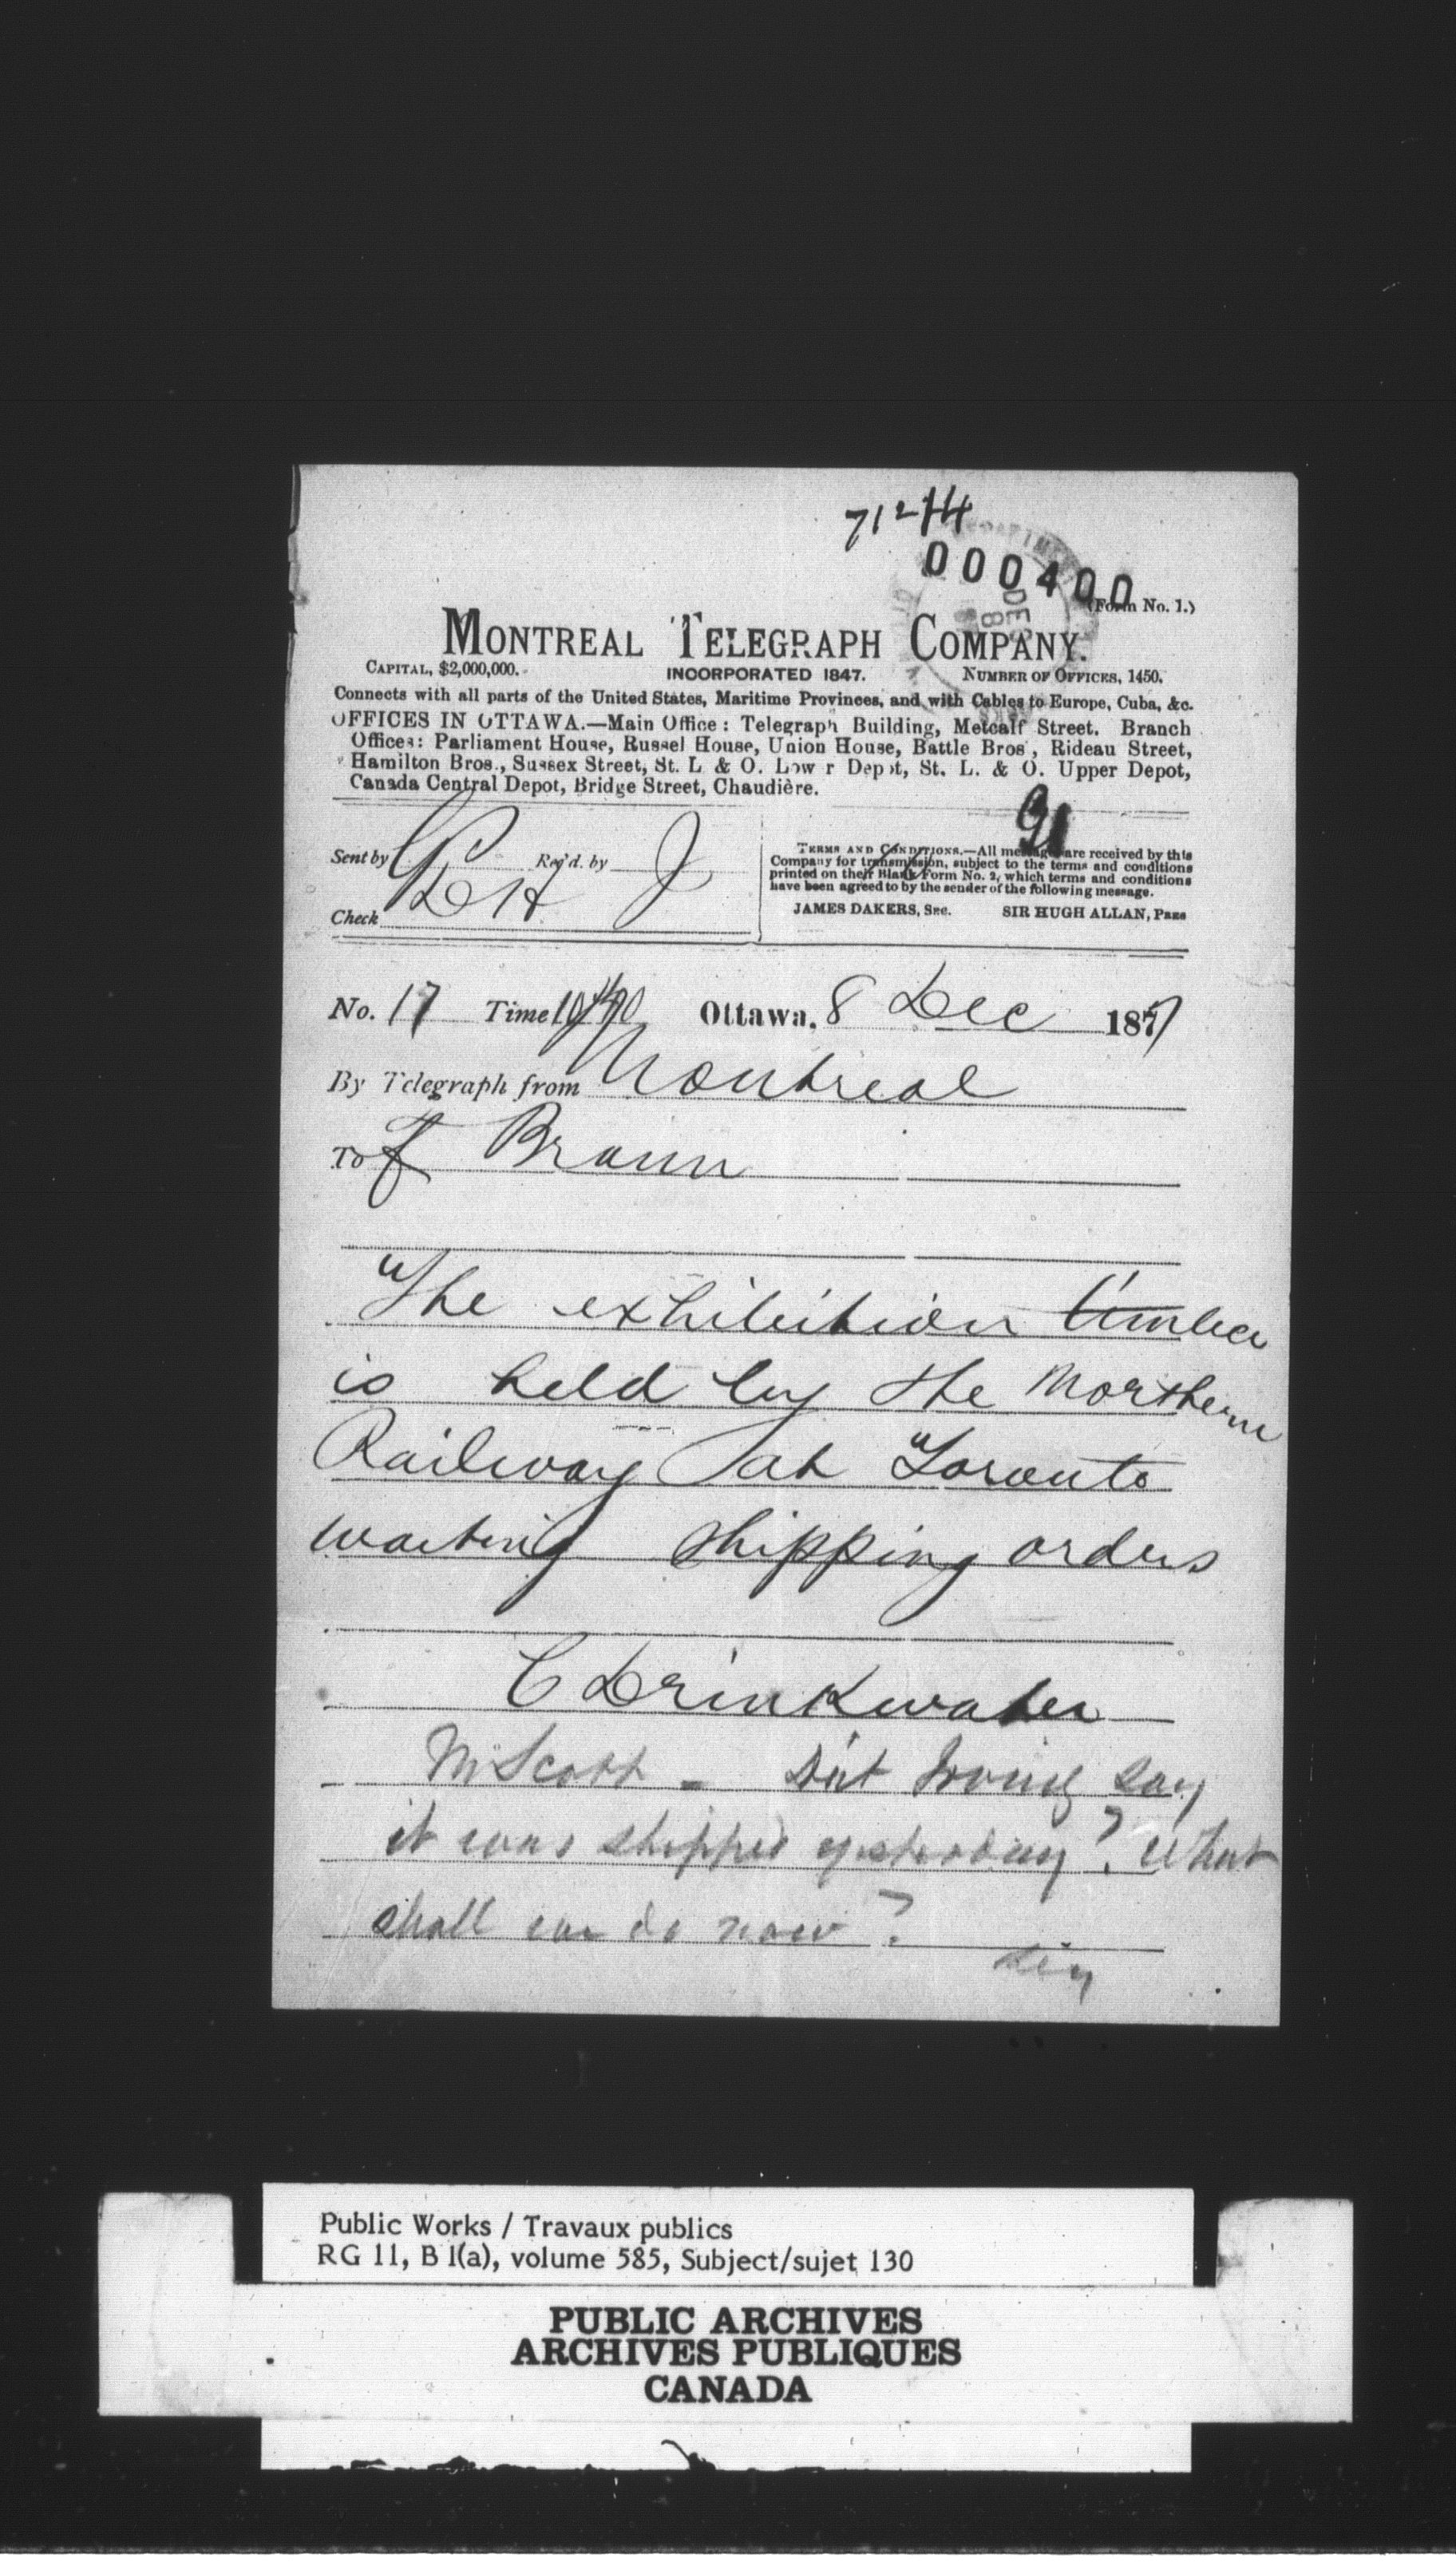 71244
000400
(Form No. 1.)
MONTREAL TELEGRAPH COMPANY.
CAPITAL, $2,000,000. INCORPORATED 1847. NUMBER OF OFFICES, 1450.
Connects with all parts of the United States, Maritime Provinces, and with Cables to Europe, Cuba, &c.
OFFICES IN OTTAWA.—Main Office: Telegraph Building, Metcalf Street. Branch
Offices: Parliament House, Russel House, Union House, Battle Bros., Rideau Street,
Hamilton Bros., Sussex Street, St. L & O. Low r Depot, St. L. & O. Upper Depot,
Canada Central Depot, Bridge Street, Chaudière.
Sent by Rec'd. by J
Check
TERMS AND CONDITIONS.—All messages are received by this
Company for transmission, subject to the terms and conditions
printed on their Blank Form No. 2, which terms and conditions
have been agreed to by the sender of the following message.
JAMES DAKERS, SEC. SIR HUGH ALLAN, PRES
No. 17 Time Ottawa, 8 Dec 1877
By Telegraph from Montreal
To F Braun
The exhibition timber
is held by the Northern
Railway at Toronto
waiting shipping orders
C Drinkwater
Mr Scott - Did Irving say
it was shipped yesterday? What
shall we do now?
Public Works / Travaux publics
RG 11, B 1(a), volume 585, Subject/sujet 130
PUBLIC ARCHIVES
ARCHIVES PUBLIQUES
CANADA